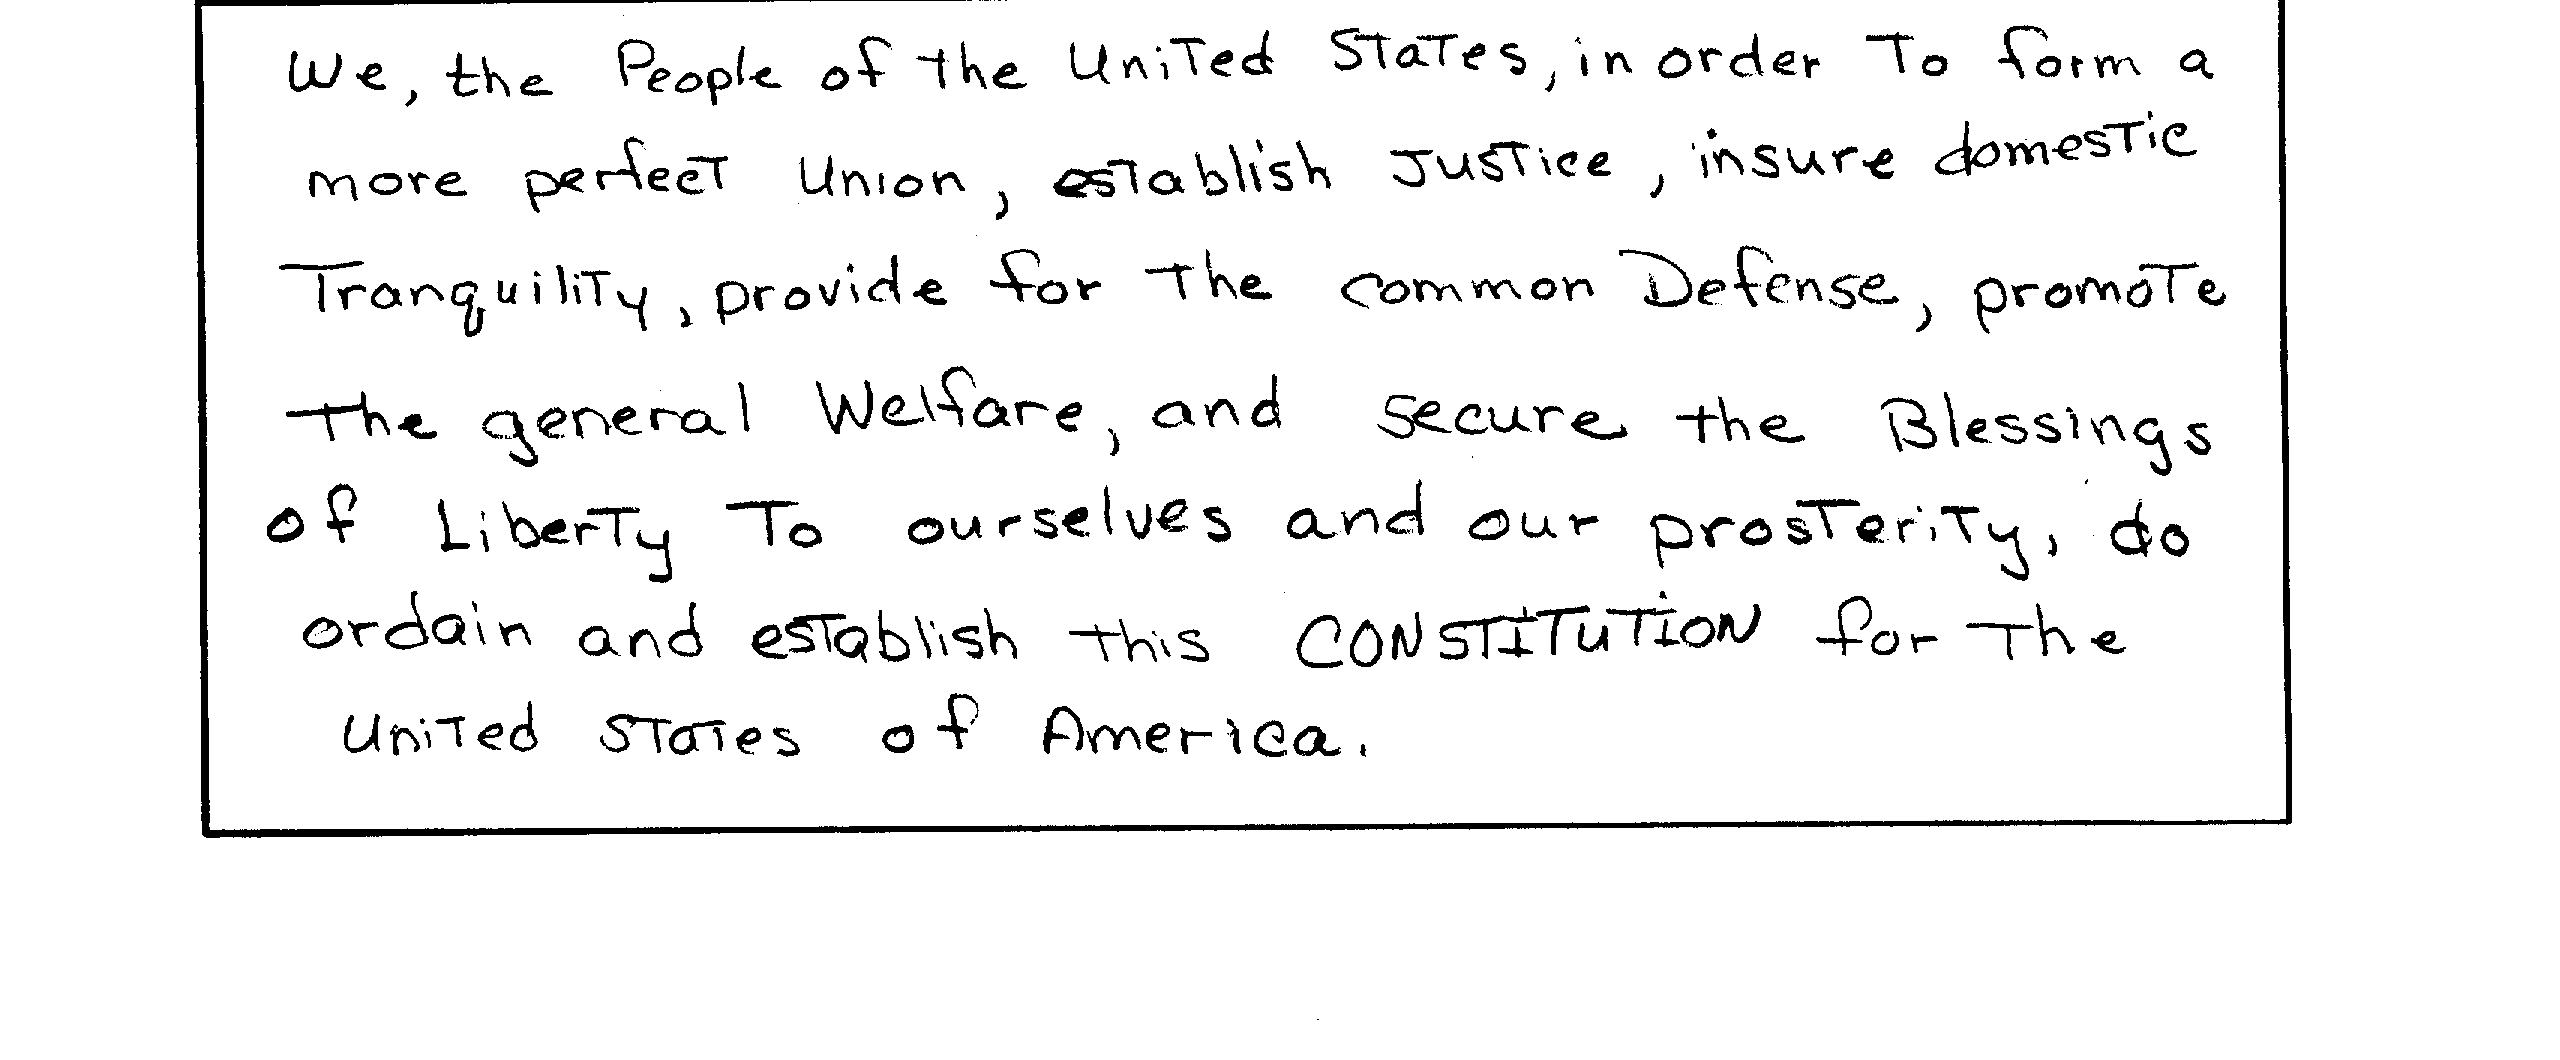 We, the People of the United States, in order to form a
more perfect Union, establish Justice, insure domestic
Tranquility, provide for the common Defense, promote
the general Welfare, and secure the Blessings
of Liberty to ourselves and our prosterity, do
ordain and establish this CONSTITUTION for the
United States of America.